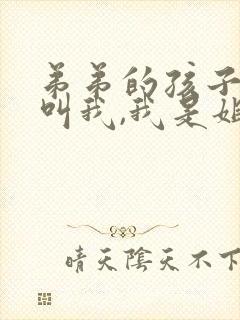 弟弟的孩子
叫我,我是姐
晴天陰天不下